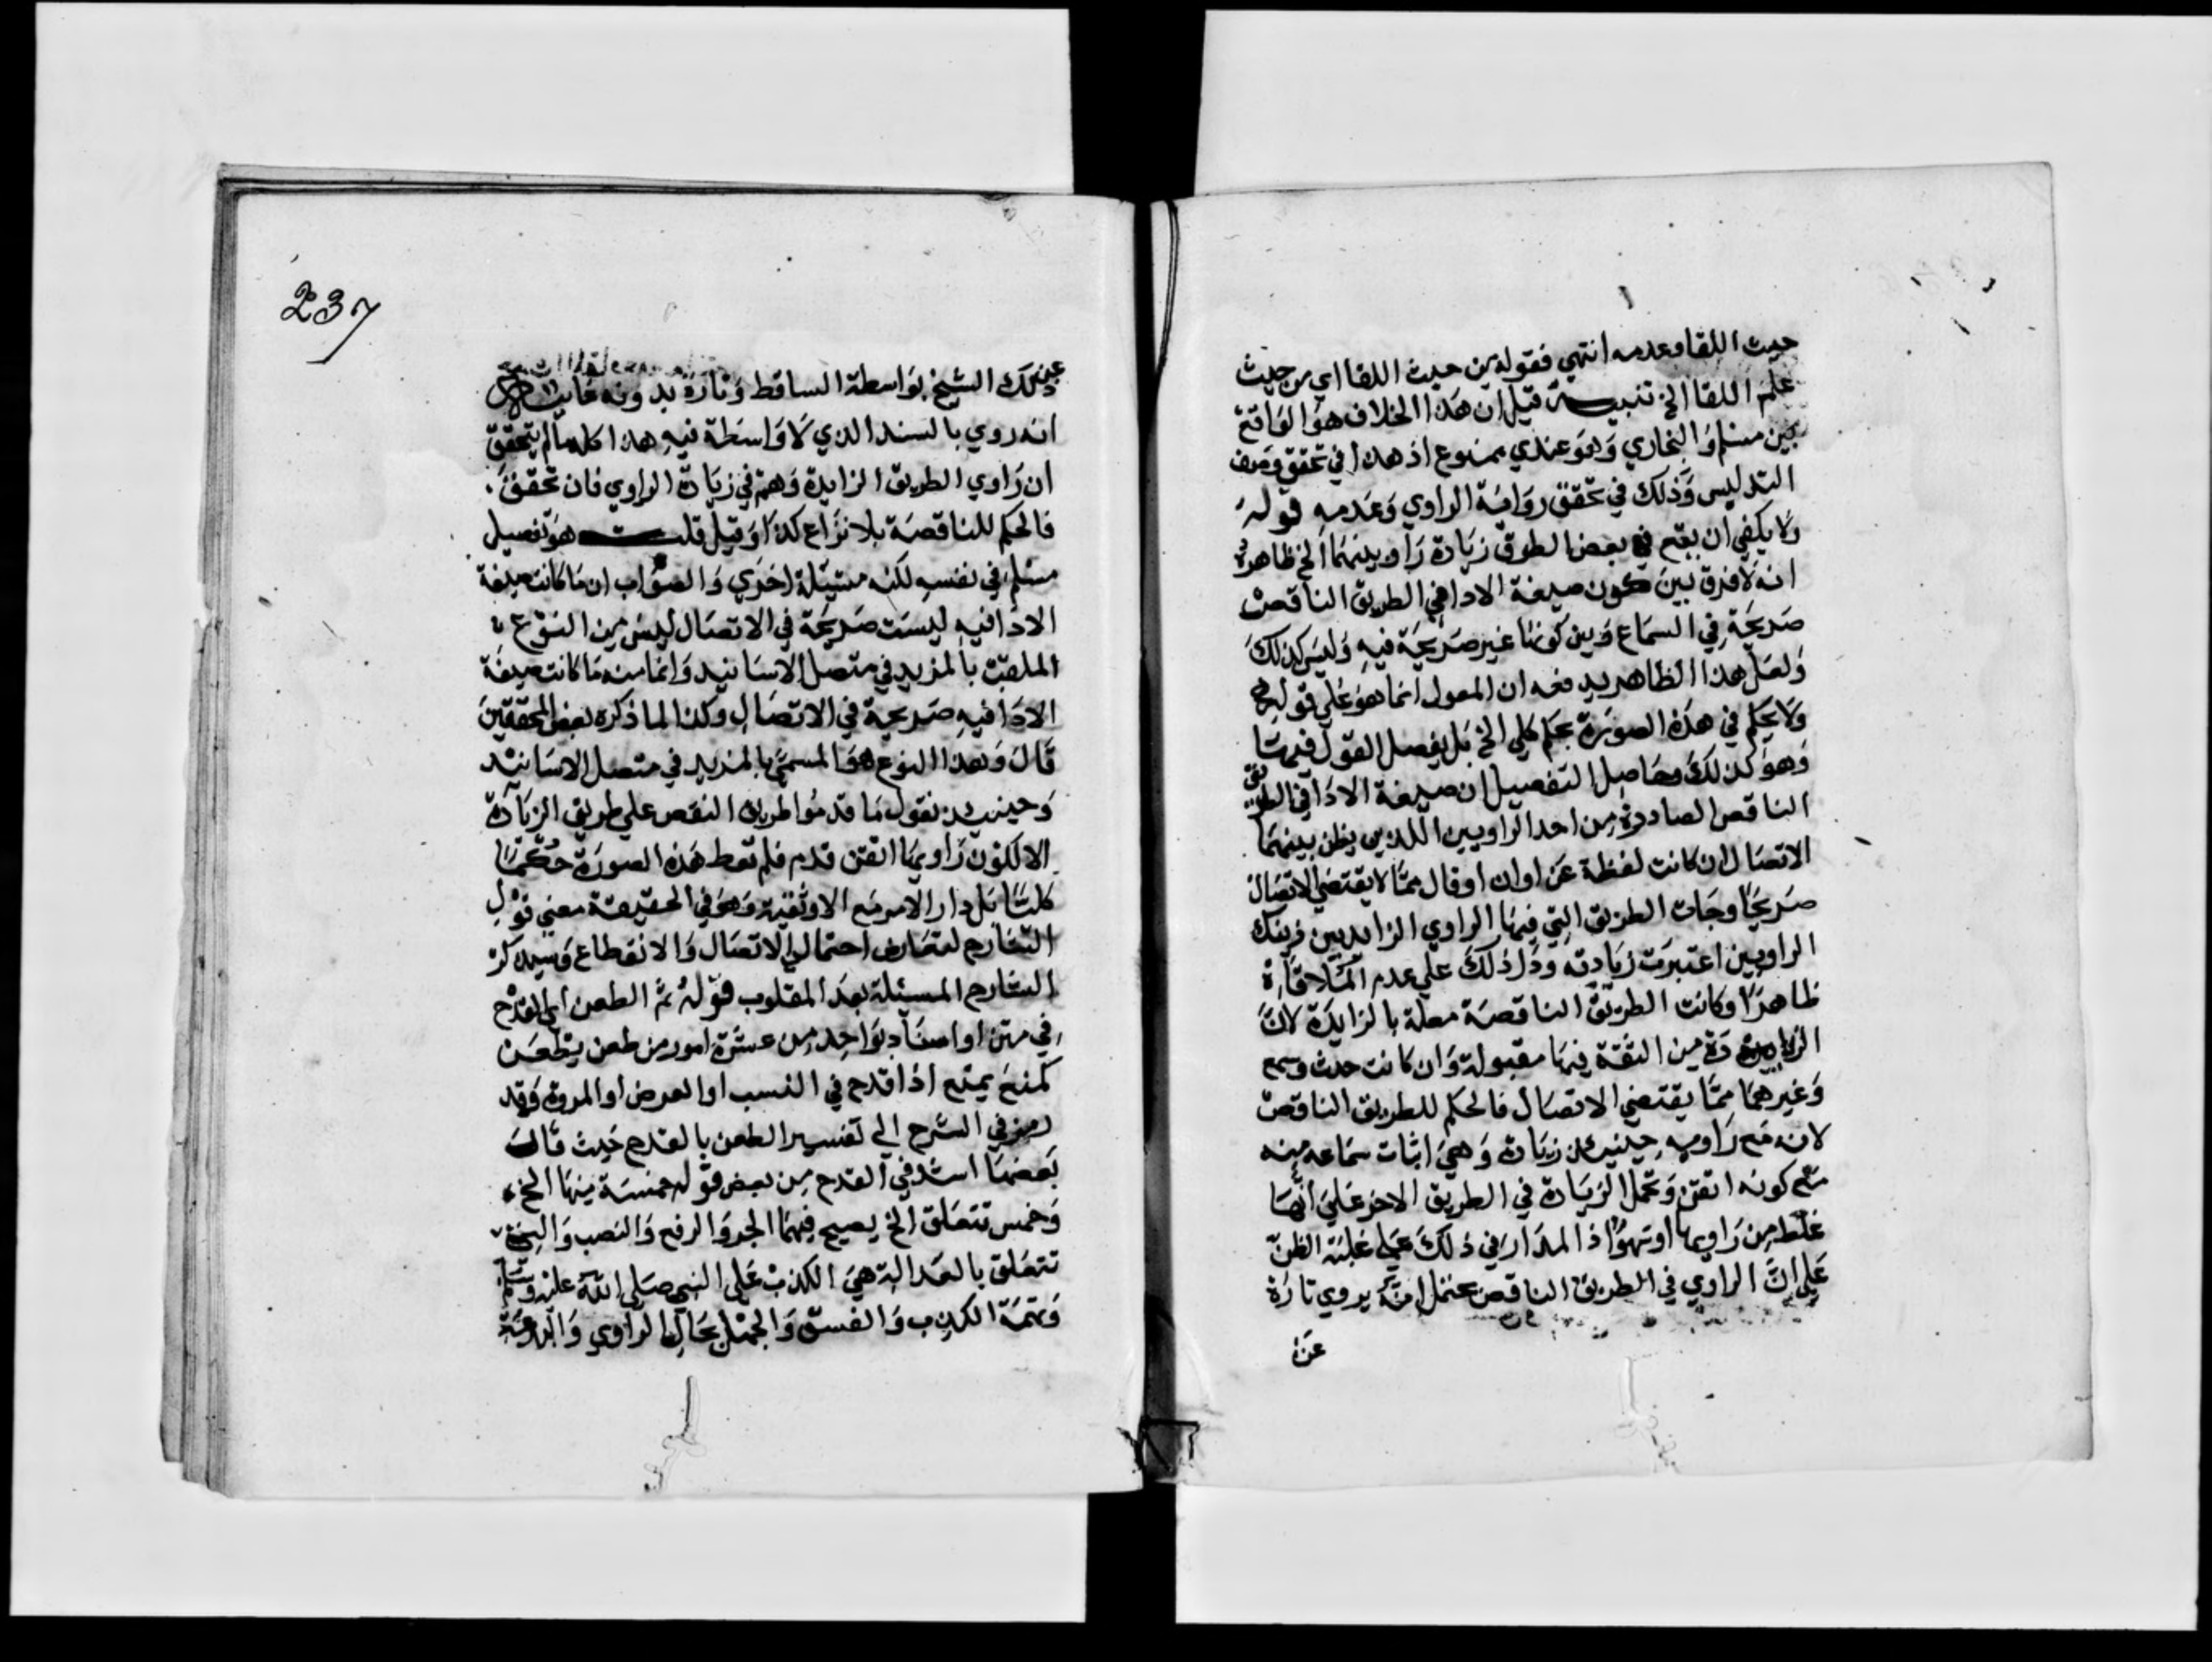 حيث اللقا وعدمه انتهي فقوله من حيث اللقا اي من حيث
علم اللقا الخ تنبيه قيل ان هذا الخلاف هو الواقع
بين مسلم والبخاري وهو عندي ممنوع اذ هذا في تحقق وصف
التدليس وذلك في تحقق رواية الراوي وعدمه قوله
ولا يكفي ان يقع في بعض الطرق زيادة راو بينهما الخ ظاهره
انه لا فرق بين كون صيغة الادا في الطريق الناقص
صريحة في السماع وبين كونها غير صريحة فيه وليس كذلك
ولعل هذا الظاهر يدفعه ان المعول انما هو علي قوله
ولا يحكم في هذه الصورة بحكم كلي الخ بل يفصل القول فيها
وهو كذلك وحاصل التفصيل ان صيغة الادا في الطريق
الناقص الصادرة من احد الراويين اللذين يظن بينهما
الاتصال ان كانت لفظة عن او ان او قال مما لا يقتضي الاتصال
صريحا وجات الطريق التي فيها الراوي الزايد بين ذينك
الراويين اعتبرت زيادته ودل ذلك علي عدم الملاقاة
ظاهرا وكانت الطريق الناقصة معلة بالزايدة لان
الزيادة من الثقة فيها مقبولة وان كانت حدث وسمع
وغيرهما مما يقتضي الاتصال فالحكم للطريق الناقص
لانه مع راويه حينيذ زيادة وهي اثبات سماعه منه
مع كونه اتقن وتحمل الزيادة في الطريق الاخر علي انها
غلط من راويها او سهو اذ المدار في ذلك علي غلبة الظن
علي ان الراوي في الطريق الناقص يحتمل انه يروي تارة
عن
237
عن ذلك الشيخ بواسطة الساقط وتارة بدونه غاية
انه روي بالسند الذي لا واسطة فيه هذا كله ما لم يتحقق
ان راوي الطريق الزايدة وهم في زيادة الراوي فان تحقق
فالحكم للناقصة بلا نزاع كذا وقيل قلت هو تفصيل
مسلم في نفسه لكنه مسيلة اخري والصواب ان ما كانت صيغة
الادا فيه ليست صريحة في الاتصال ليس من النوع
الملقب بالمزيد في متصل الاسانيد وانما منه ما كانت صيغة
الادا فيه صريحة في الاتصال وكذا لما ذكره بعض المحققين
قال وهذا النوع هو المسمي بالمزيد في متصل الاسانيد
وحينيذ نقول ما قدموا طريق النقص علي طريق الزيادة
الا لكون راويها اتقن قدم فلم تعط هذه الصورة حكما
كليا بل دار الامر مع الاوثقية وهو في الحقيقة معني قول
الشارح لتعارض احتمال الاتصال والانقطاع وسيذكر
الشارح المسيلة بعد المقلوب قوله ثم الطعن اي القدح
في متن او اسناد بواحد من عشرة امور من طعن يطعن
كمنع يمنع اذا قدح في النسب او العرض او المروة وقد
رمز في الشرح الي تفسير الطعن بالقدح حيث قال
بعضها اشد في القدح من بعض قوله خمسة منها الخ
وخمس تتعلق الخ يصح فيهما الجر والرفع والنصب والتي
تتعلق بالعدالة هي الكذب علي النبي صلي الله عليه وسلم
وتهمة الكذب والفسق والجهل بحال الراوي والبدعة